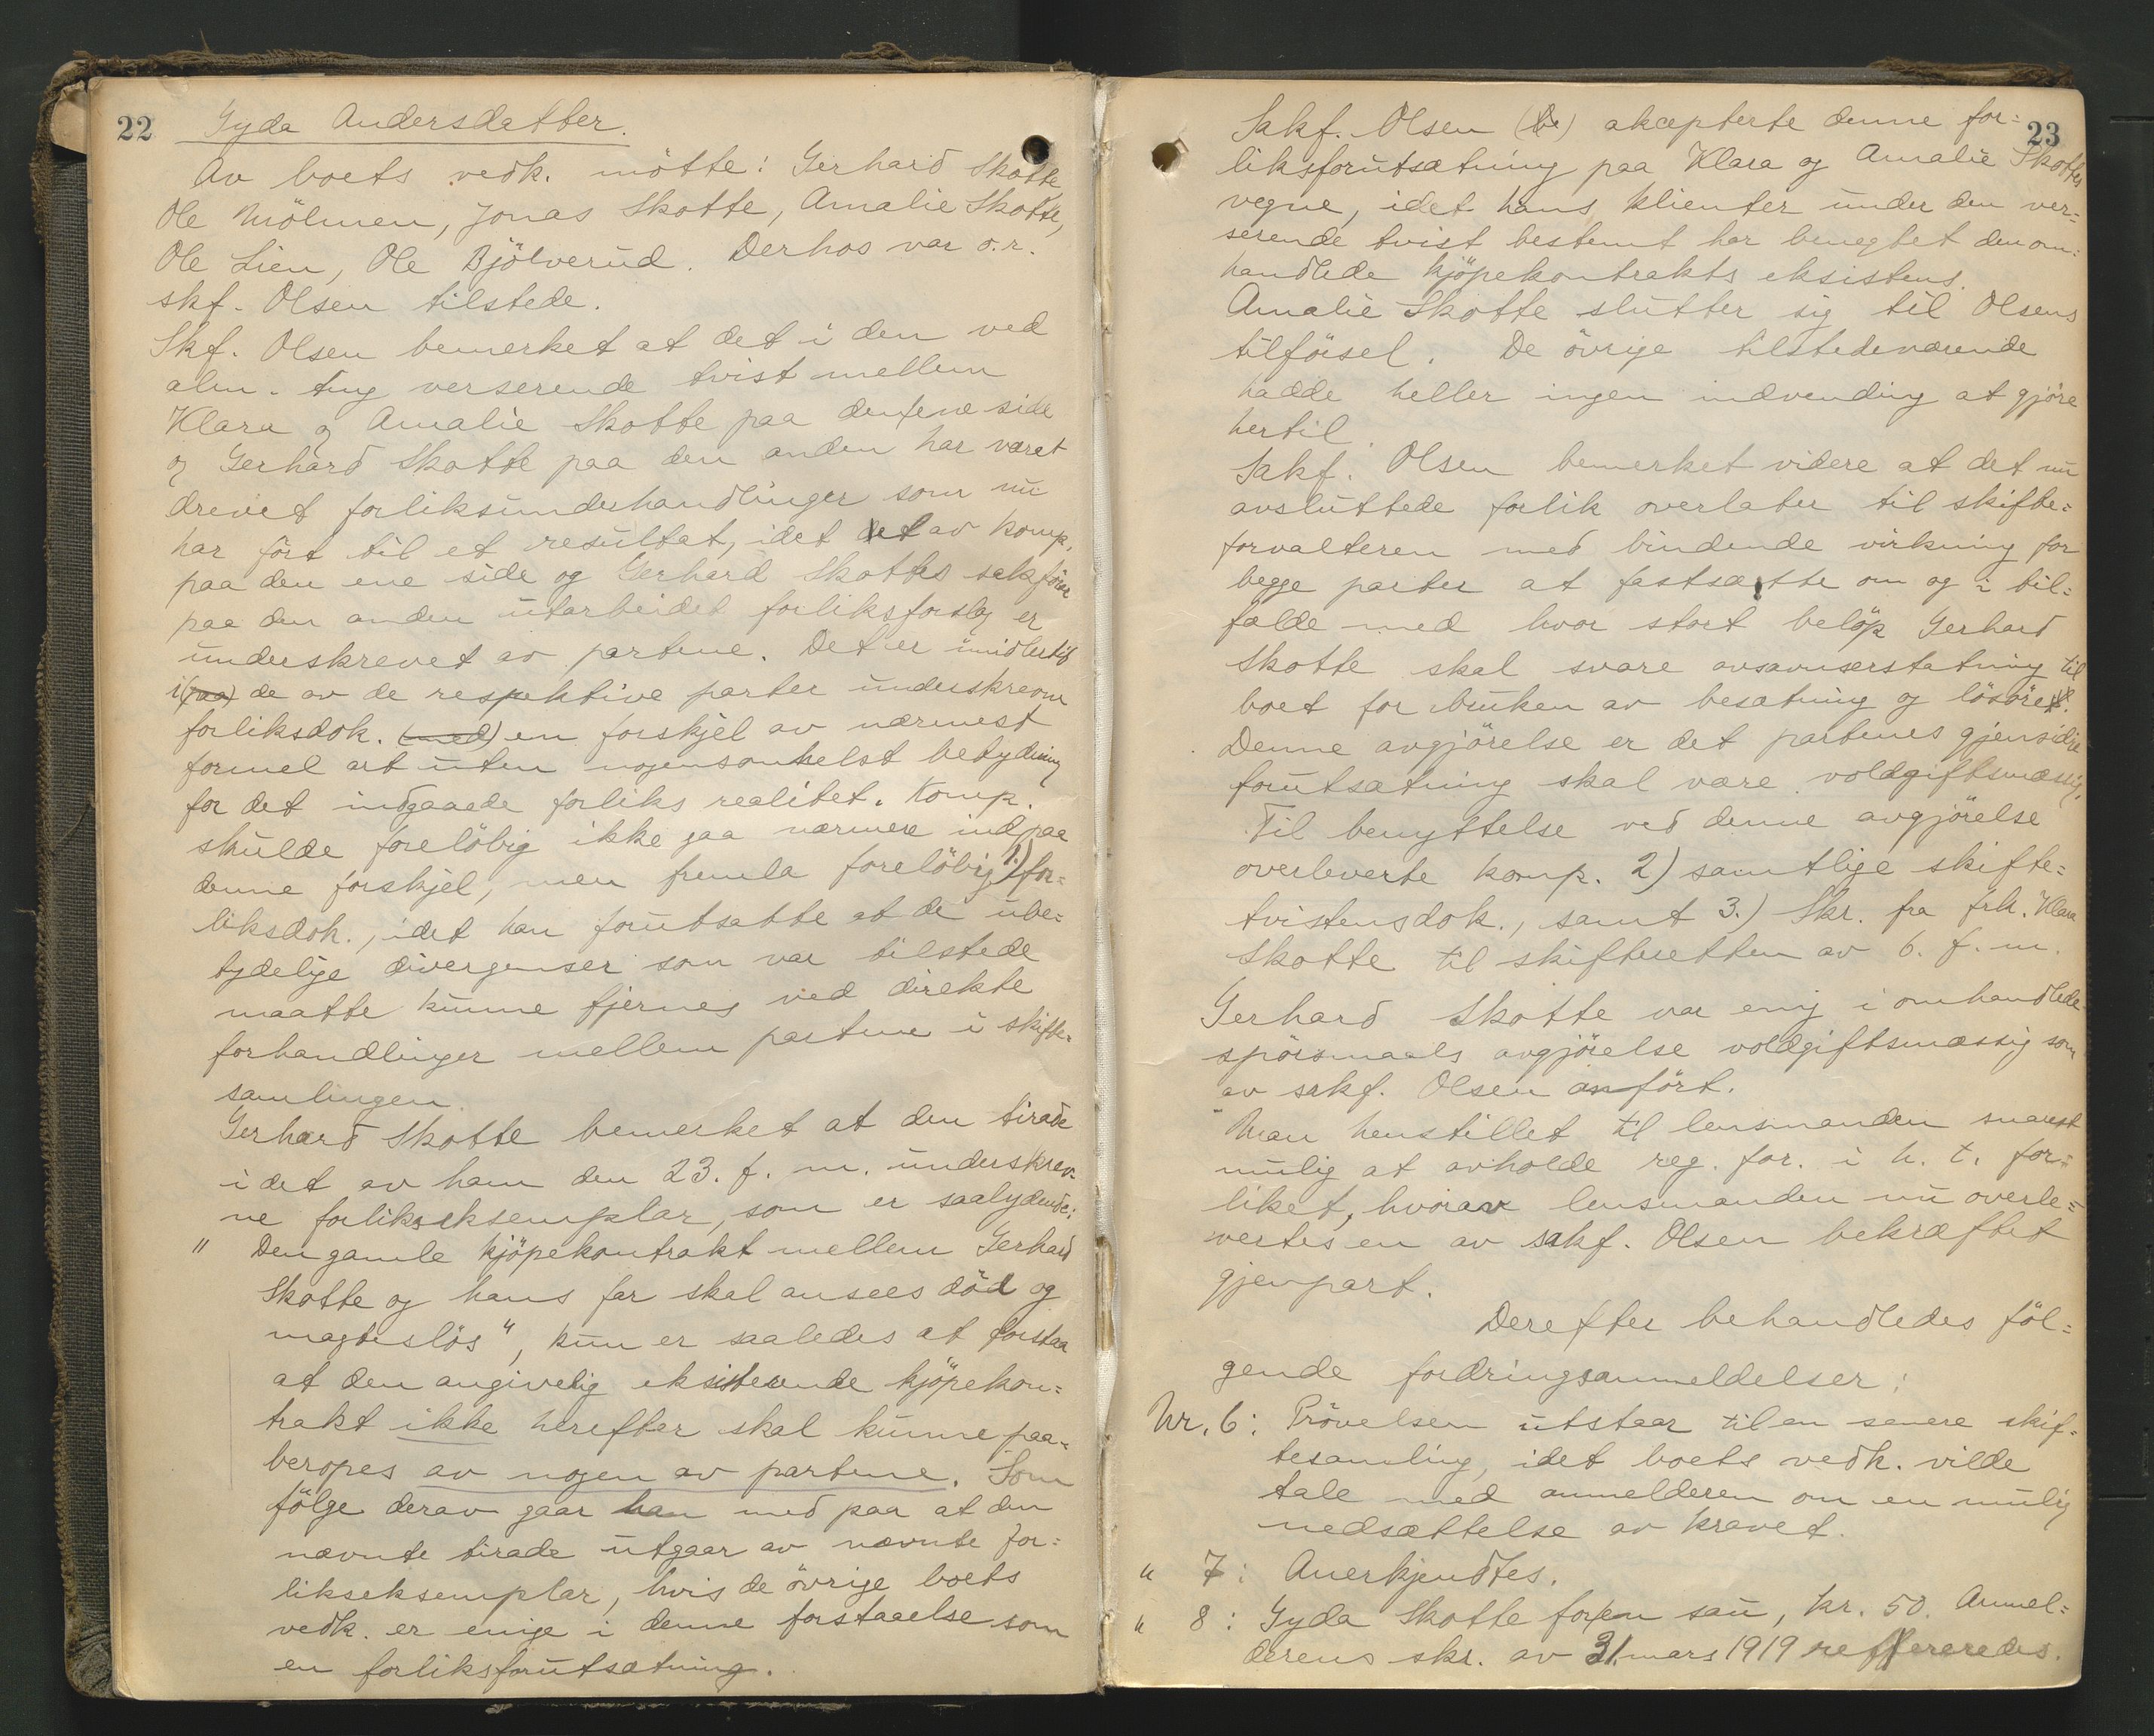 22
Gyda Andersdatter.
Av boets vedk. mötte: Gerhard Skotte,
Ole Mölmen, Jonas Skotte, Amalie Skotte,
Ole Lien, Ole Bjölverud. Derhos var o.r.
skf. Olsen tilstede.
Skf. Olsen bemerket at det i den ved
alm. ting verserende tvist mellem
Klara og Amalie Skotte paa den ene side
og Gerhard Skotte paa den anden har været
drevet forliksunderhandlinger som nu
har fört til et resultat, idet det av komp.
paa den ene side og Gerhard Skottes sakförer
paa den anden utarbeidet forliksforslag er
underskrevet av partene. Det er imidlertid
i (paa) de av de respektive parter underskrevne
forliksdok. (med) en forskjel av nærmest
formel art uten nogensomhelst betydning
for det indgaaede forliks realitet. Komp.
skulde forelöbig ikke gaa nærmere ind paa
denne forskjel, men fremla forelöbig 1.) for=
liksdok., idet han forutsatte at de ube=
tydelige divergenser som var tilstede
maatte kunne fjernes ved direkte
forhandlinger mellem partene i skifte-
samlingen.
Gerhard Skotte bemerket at den tirade
i det av ham den 23. f. m. underskrev-
ne forlikseksemplar, som er saalydende:
" Den gamle kjöpekontrakt mellem Gerhard
Skotte og hans far skal ansees död og
magteslös", kun er saaledes at forstaa
at den angivelig eksisterende kjöpekon=
trakt ikke herefter skal kunne paa=
beropes av nogen av partene. Som
fölge derav gaar han med paa at den
nævnte tirade utgaar av nævnte for=
likseksemplar, hvis de övrige boets
vedk. er enige i denne forstaaelse som
en forliksforutsætning.
23
Sakf. Olsen akcepterte denne for=
liksforutsætning paa Klara og Amalie Skottes
vegne, idet hans klienter under den ver=
serende tvist bestemt har benegtet den om=
handlede kjöpekontrakts eksistens.
Amalie Skotte slutter sig til Olsens
tilförsel. De övrige tilstedeværende
hadde heller ingen indvending at gjöre
hertil.
Sakf. Olsen bemerket videre at det nu
avsluttede forlik overlater til skifte=
forvalteren med bindende virkning for
begge parter at fastsætte om og i til=
fælde med hvor stort belöp Gerhard
Skotte skal svare avsavnserstatning til
boet for bruken av besætning og lösöre.
Denne avgjörelse er det partenes gjensidige
forutsætning skal være voldgiftsmæssig.
Til benyttelse ved denne avgjörelse
overleverte komp. 2) samtlige skifte=
tvistensdok., samt 3.) Skr. fra frk. Klara
Skotte til skifteretten av 6. f. m.
Gerhard Skotte var enig i omhandlede
spörsmaals avgjörelse voldgiftsmæssig som
av sakf. Olsen anfört.
Man henstillet til lensmanden snarest
mulig at avholde reg. for. i h. t. for=
liket, hvorav lensmanden nu overle=
vertes en av sakf. Olsen bekræftet
gjenpart.
Derefter behandledes föl=
gende fordringsanmeldelser:
Nr. 6: Prövelsen utstaar til en senere skif=
tesamling, idet boets vedk. vilde
tale med anmelderen om en mulig
nedsættelse av kravet.
" 7: Anerkjendtes.
" 8: Gyda Skotte for en sau, kr. 50. Anmel=
derens skr. av 31. mars 1919 reffereredes.